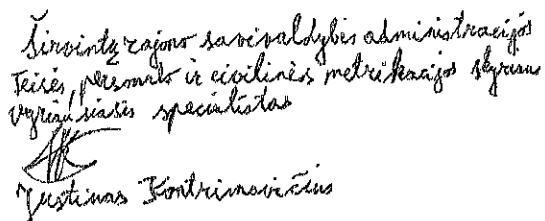 Širvintų rajono savivaldybės administracijos
Teisės, personalo ir civilinės metrikacijos skyriaus
vyriausiasis specialistas
Justinas Kontrimavičius